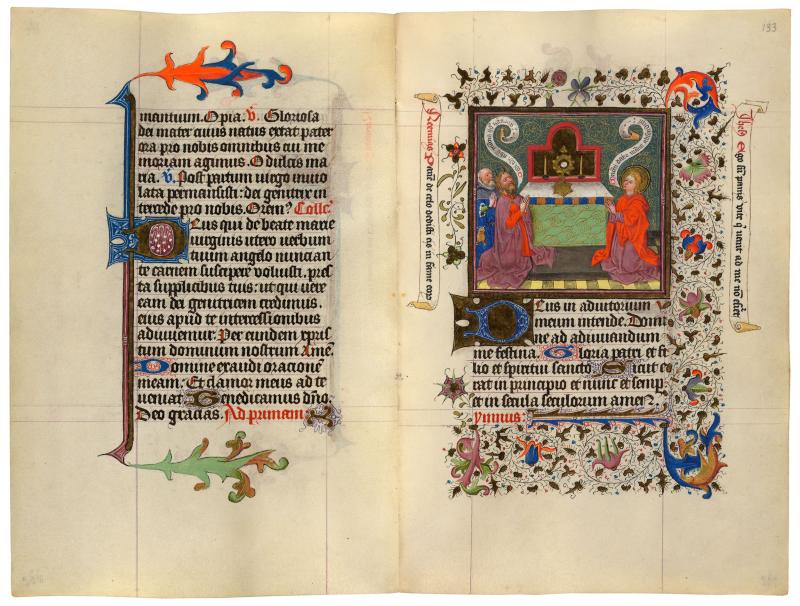 mantium. O pia. v. Gloriosa
dei mater cuius natus extat pater
ora pro nobis omnibus qui me
moriam agimus. O dulcis ma
ria. v. Post partum uirgo inuio
lata permansisti: dei genitrix in
tercede pro nobis. Orem? Collc
Deus qui de beate marie
uirginis utero uerbum
tuum angelo nunciam
te carnem suscipere voluisti. pres
ta supplicibus tuis: ut qui uere
eam dei genitricem credimus.
eius apud te intercessionibus
adiuuemur. Per eundem xpris
tum dominum nostrum. Amē.
Domine exaudi orationē
meam. Et clamor meus ad te
ueniat. Benedicamus dño.
Deo gracias. Ad primam
133
Panē de celo dedisti
Ihesus Ego sū panis vite q̄ uenit ad me nō esuriet
Deus in adiutorium
meum intende. Domi
ne ad adiuuandum
me festina. Gloria patri et fi
lio et spiritui sancto. Sicut e
rat in principio et nunc et semp
et in secula seculorum amen.
ymnus: